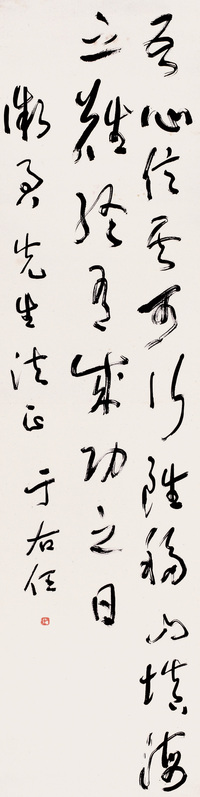 吾心信其可行雖移山填海
之難終有成功之日
先生法正 于右任